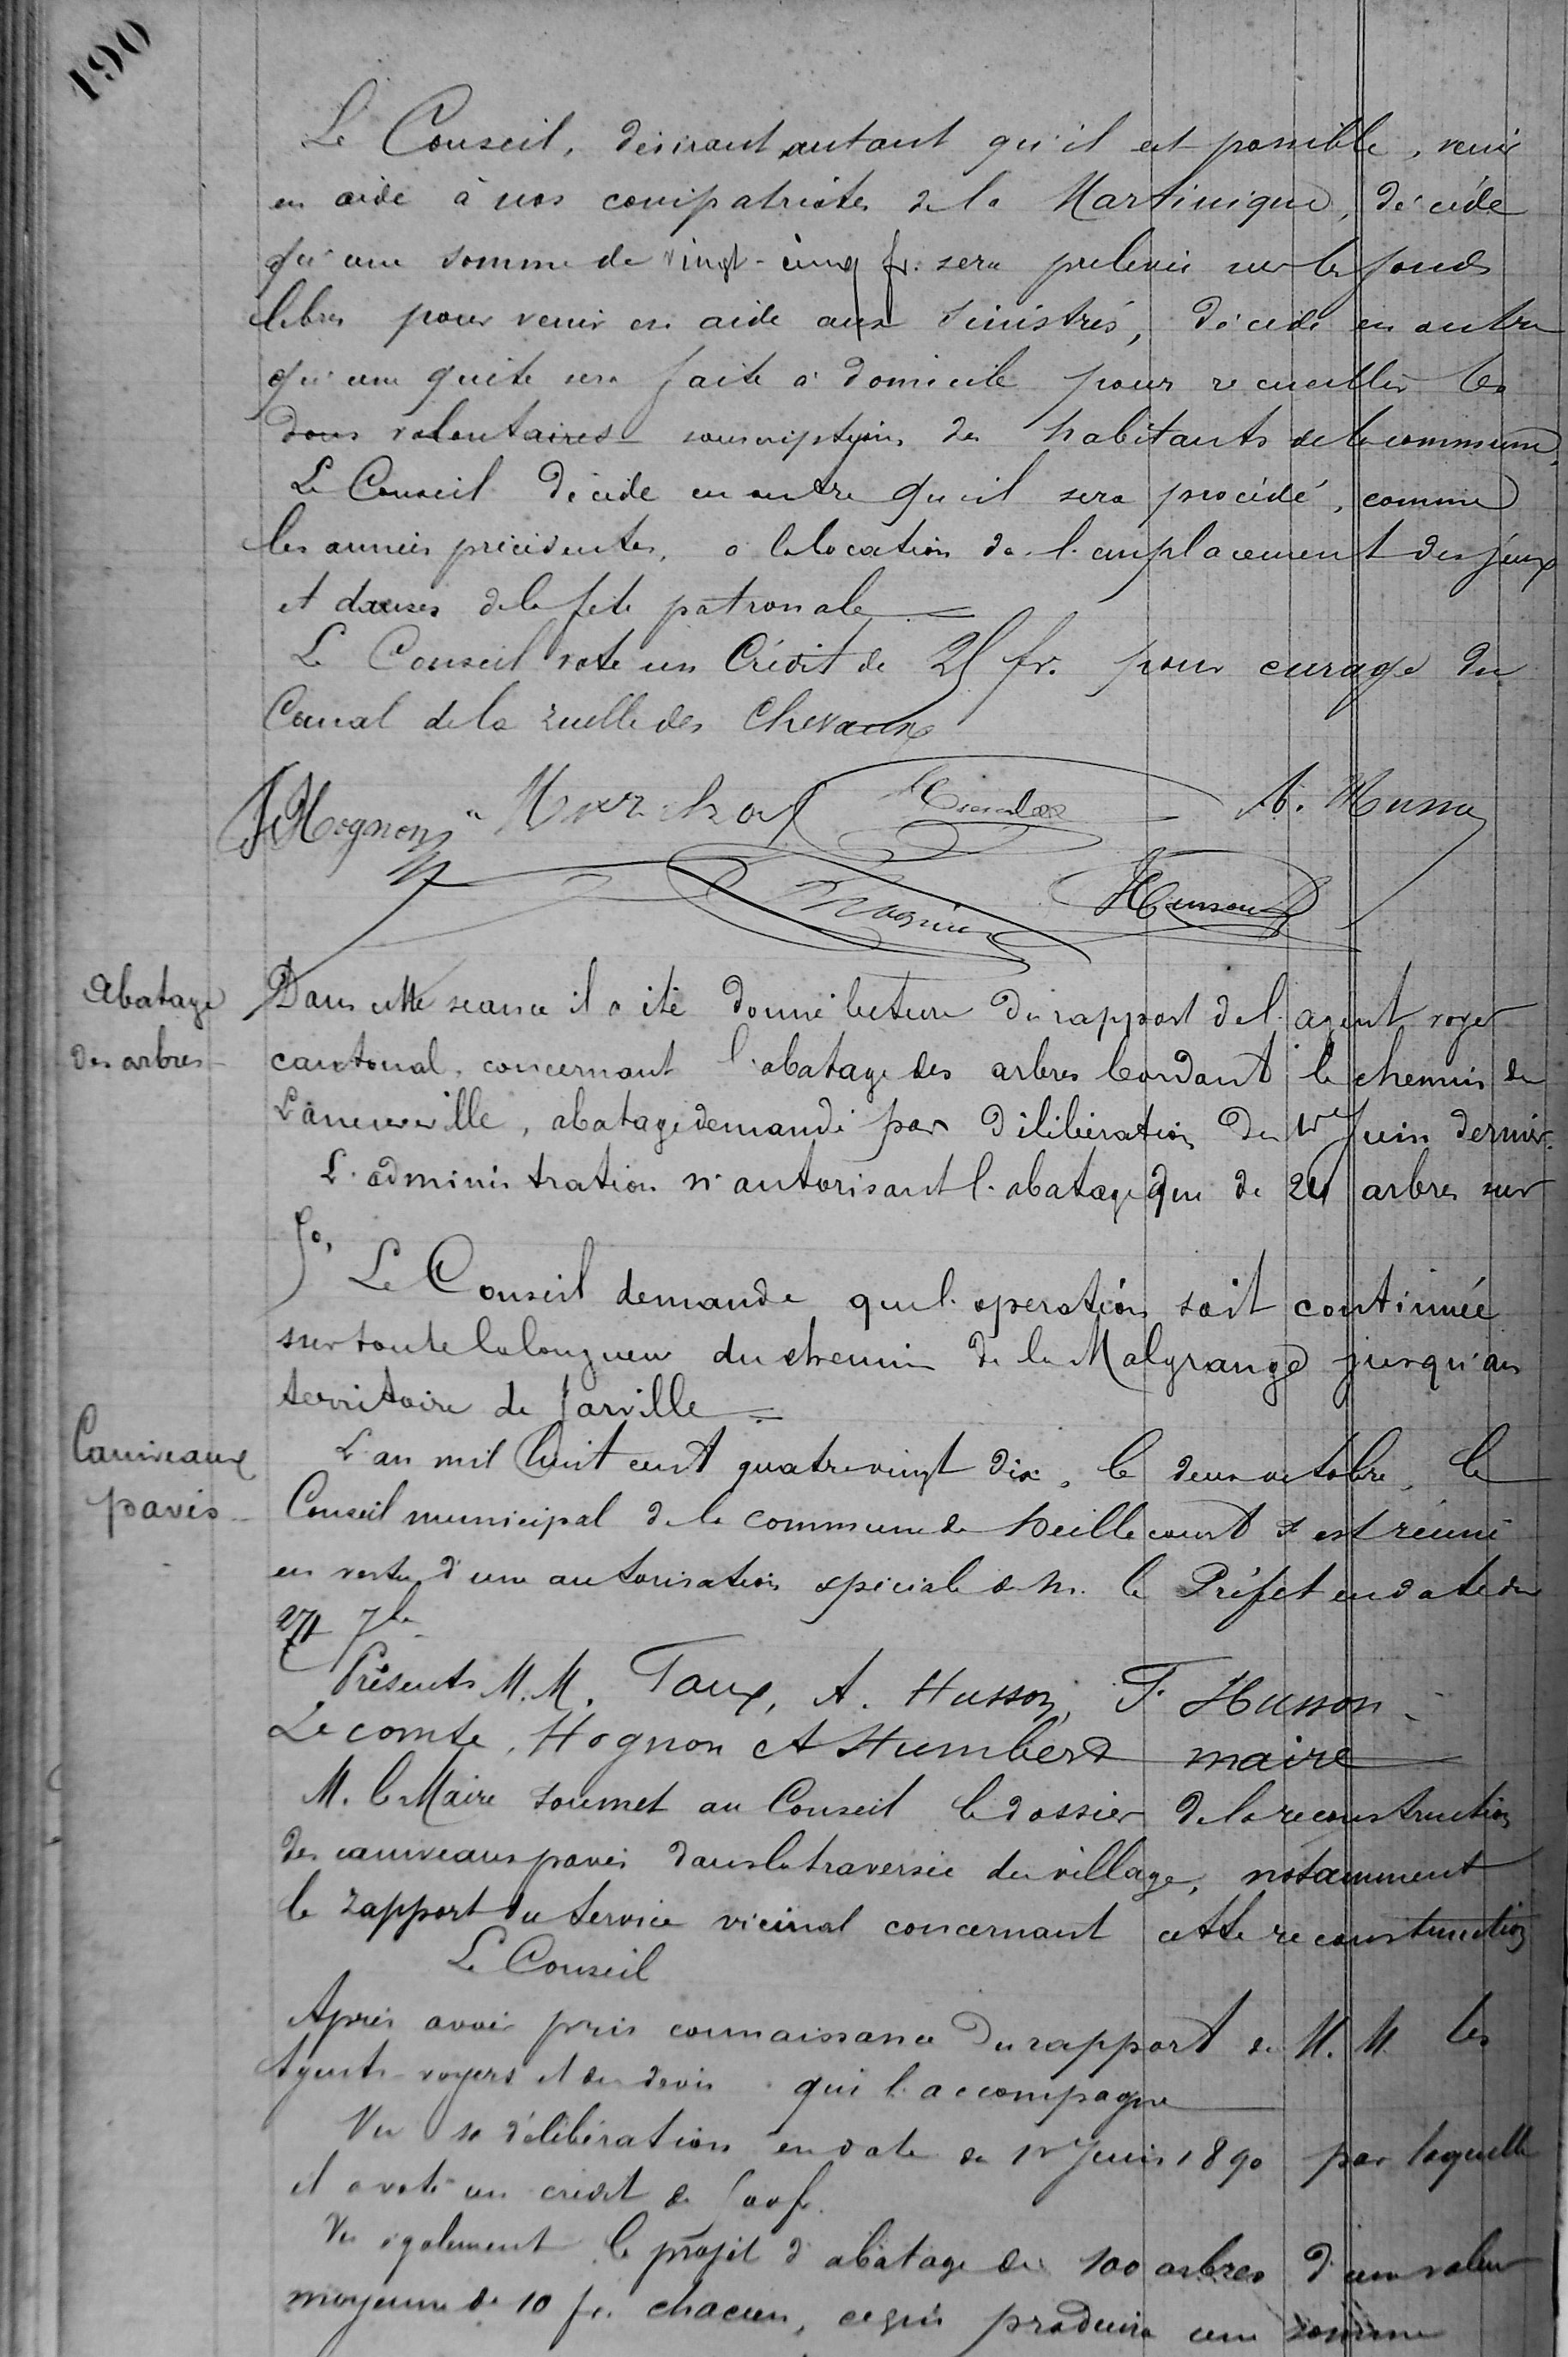 190
Le Conseil, désirant, autant qu'il est possible, venir
en aide à nos compatriotes de la Martinique, décide
qu'une somme de vingt-cinq fr. sera prelevée sur les fonds
libres pour venir en aide aux sinistrés, décide en outre
qu'une quête sera faite à domicile pour recueillir les
dons volontaires souscriptions des habitants de la commune.
Le Conseil décide en outre qu'il sera procédé, comme
les années précédentes, à la location de l'emplacement des jeux
et danses de la fête patronale
Le Conseil vote un Crédit de 25 fr. pour curage du
Canal de la ruelle des Chevaux
J Hognon Marchal A. Husson
F Husson
Abatage
des arbres
Dans cette séance il a été donné lecture du rapport de l'agent voyer
cantonal, concernant l'abatage des arbres bordant le chemin de
Laneuveville, abatage demandé par délibération du 1er Juin dernier.
L'administration n'autorisant l'abatage que de 24 arbres sur
50,
Le Conseil demande que l'opération soit continuée
sur toute la longueur du chemin de la Malgrange jusqu'au
territoire de Jarville
Caniveaux
pavés
L'an mil huit cent quatre vingt dix, le deux octobre, le
Conseil municipal de la commune de heillecourt s'est réuni
en vertu d'une autorisation spéciale de M. le Préfet en date du
27 7bre
Présents M.M. Toux, A. Husson, F. Husson
Lecomte, Hognon et Humbert maire
M. le Maire soumet au Conseil le dossier de la reconstruction
des caniveaux pavés dans la traversée du village, notamment
le rapport du Service vicinal concernant cette reconstruction
Le Conseil
Après avoir pris connaissance du rapport de M.M. les
Agents-voyers et du devis qui l'accompagne
Vu sa délibération en date du 1er Juin 1890 par laquelle
il a voté un crédit de 500 f.
Vu également le projet d'abatage de 100 arbres d'une valeur
moyenne de 10 fr. chacun, ce qui produira une somme